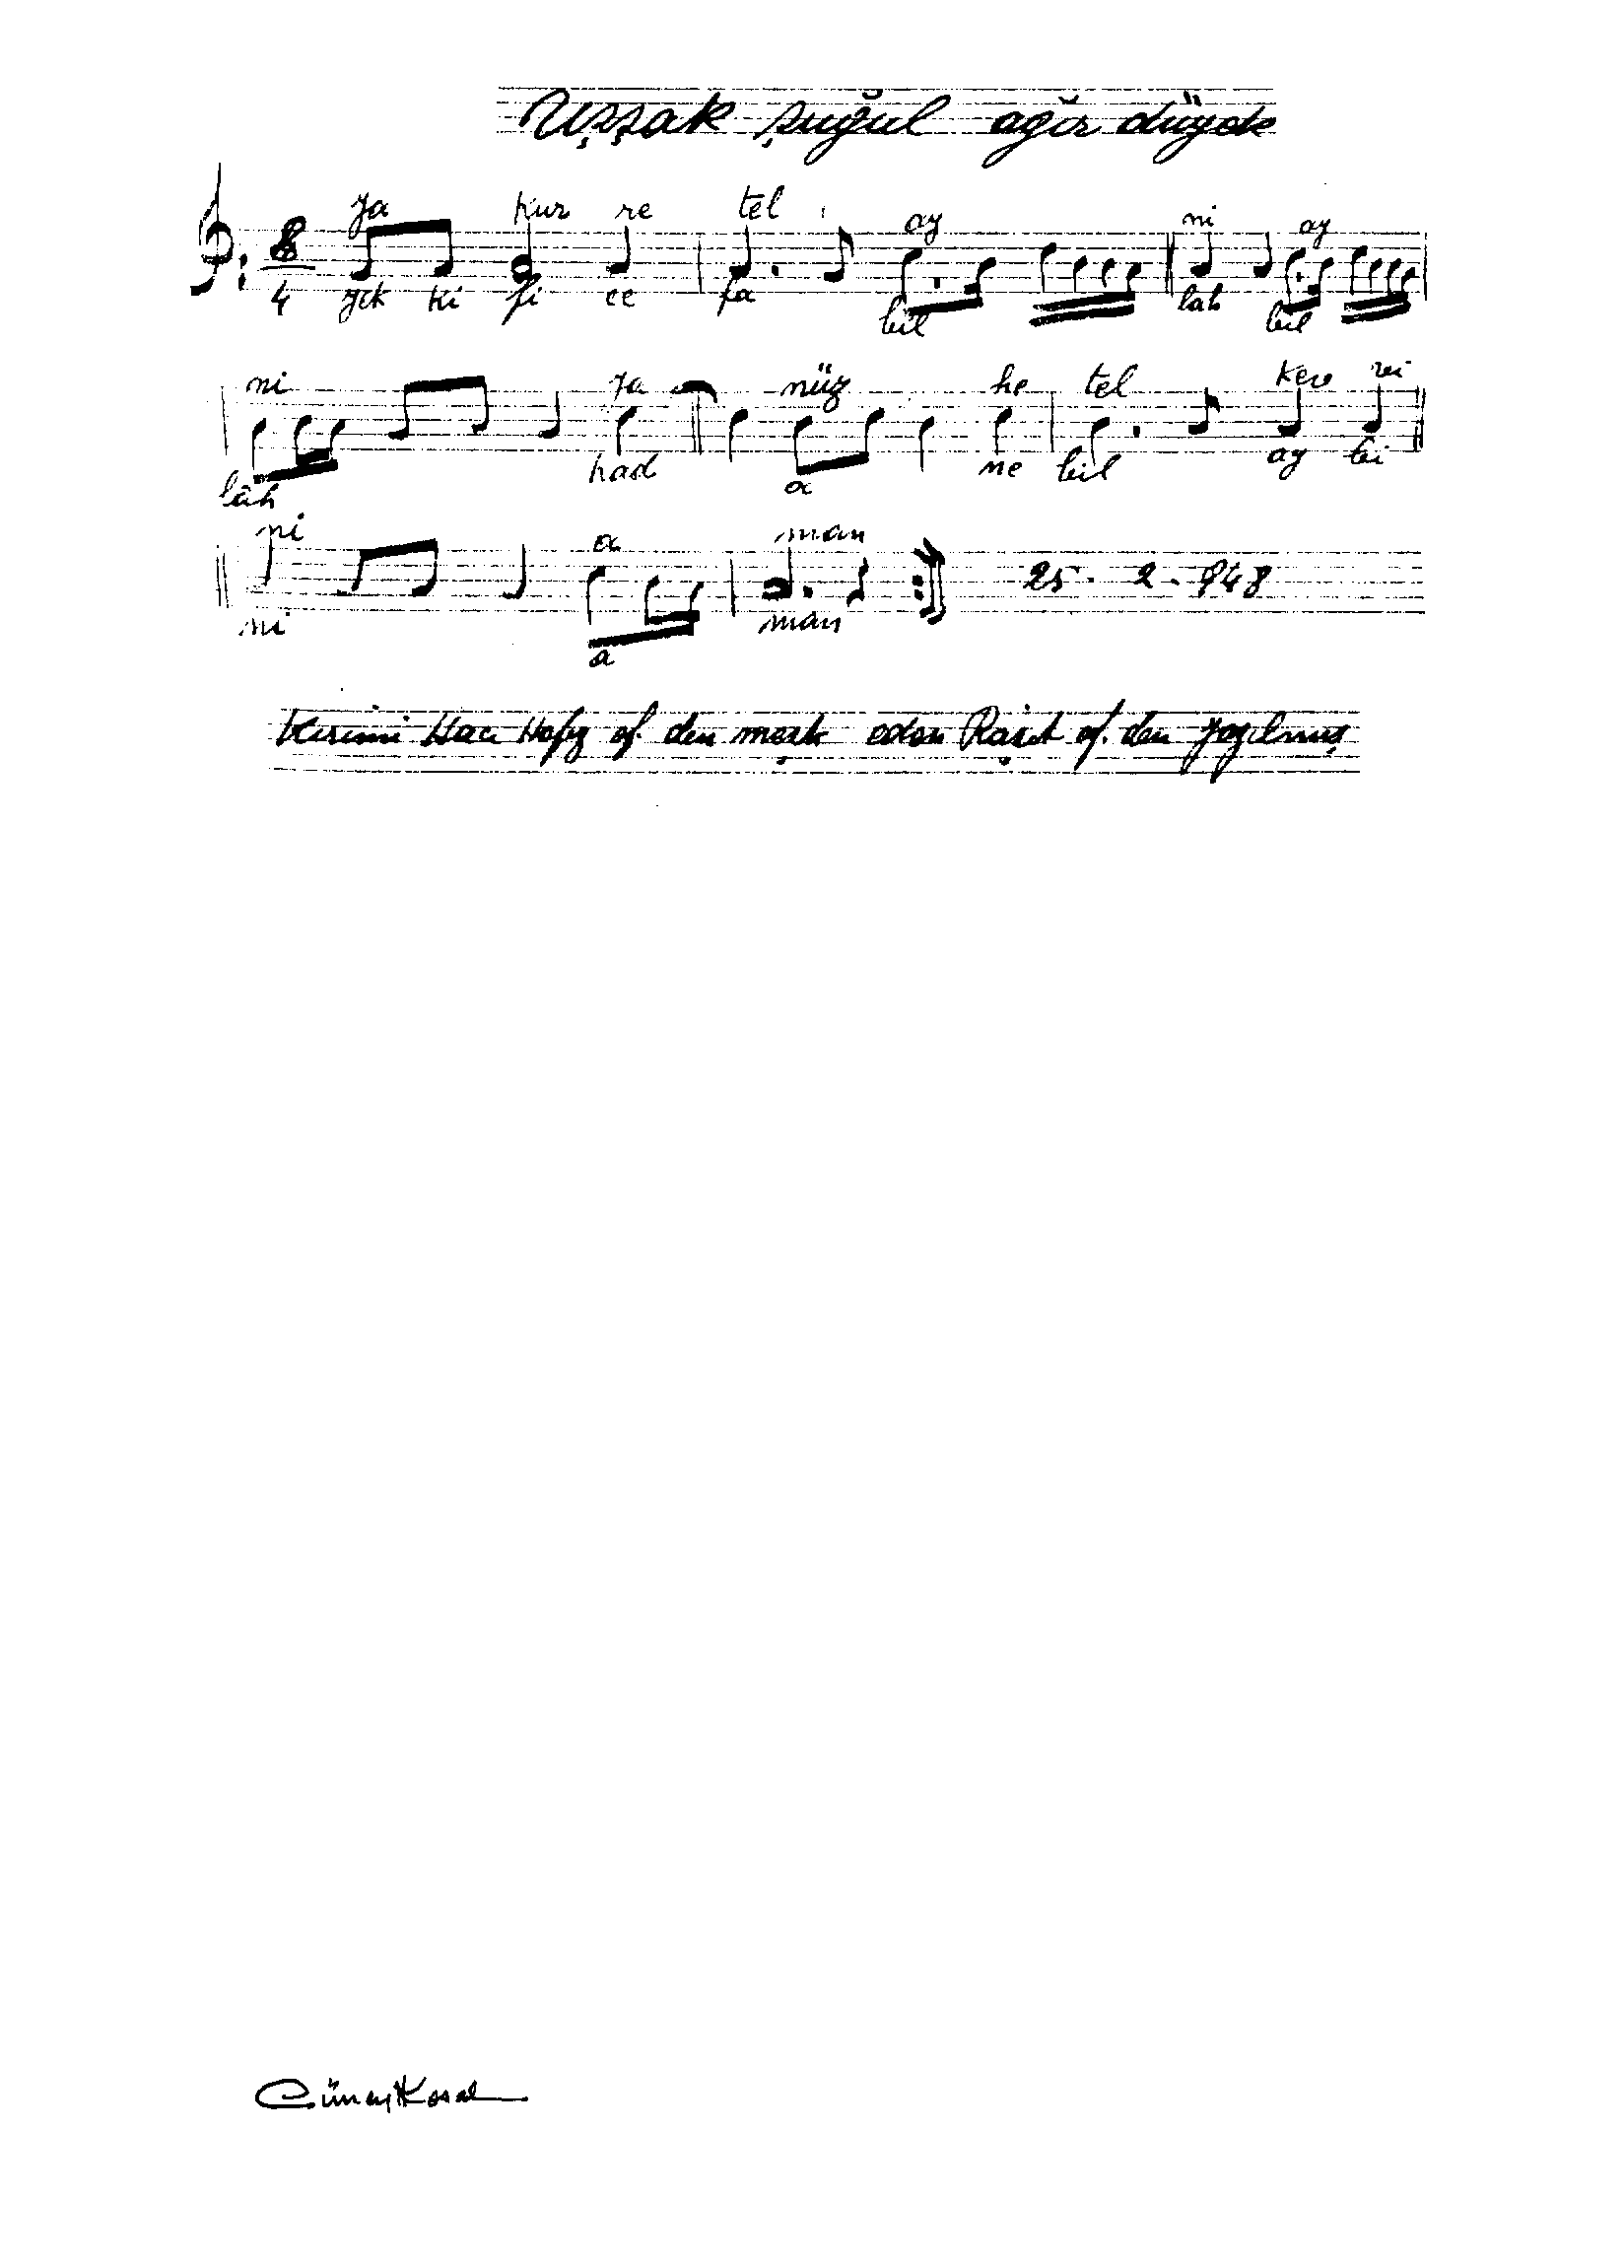 Uşşak şuğul ağır düyek
ya kur re tel ay ni ay
8
4 yek ki fi ee fa bil lah bil
ni ya nüz he tel kere mi
lâh had a ne bil ay tei
ni a man
25. 2. 948
ni a man
Hacı Hafız ef. den meşk eden Raşit ef. den yazılmış
Cüneyt Kosal